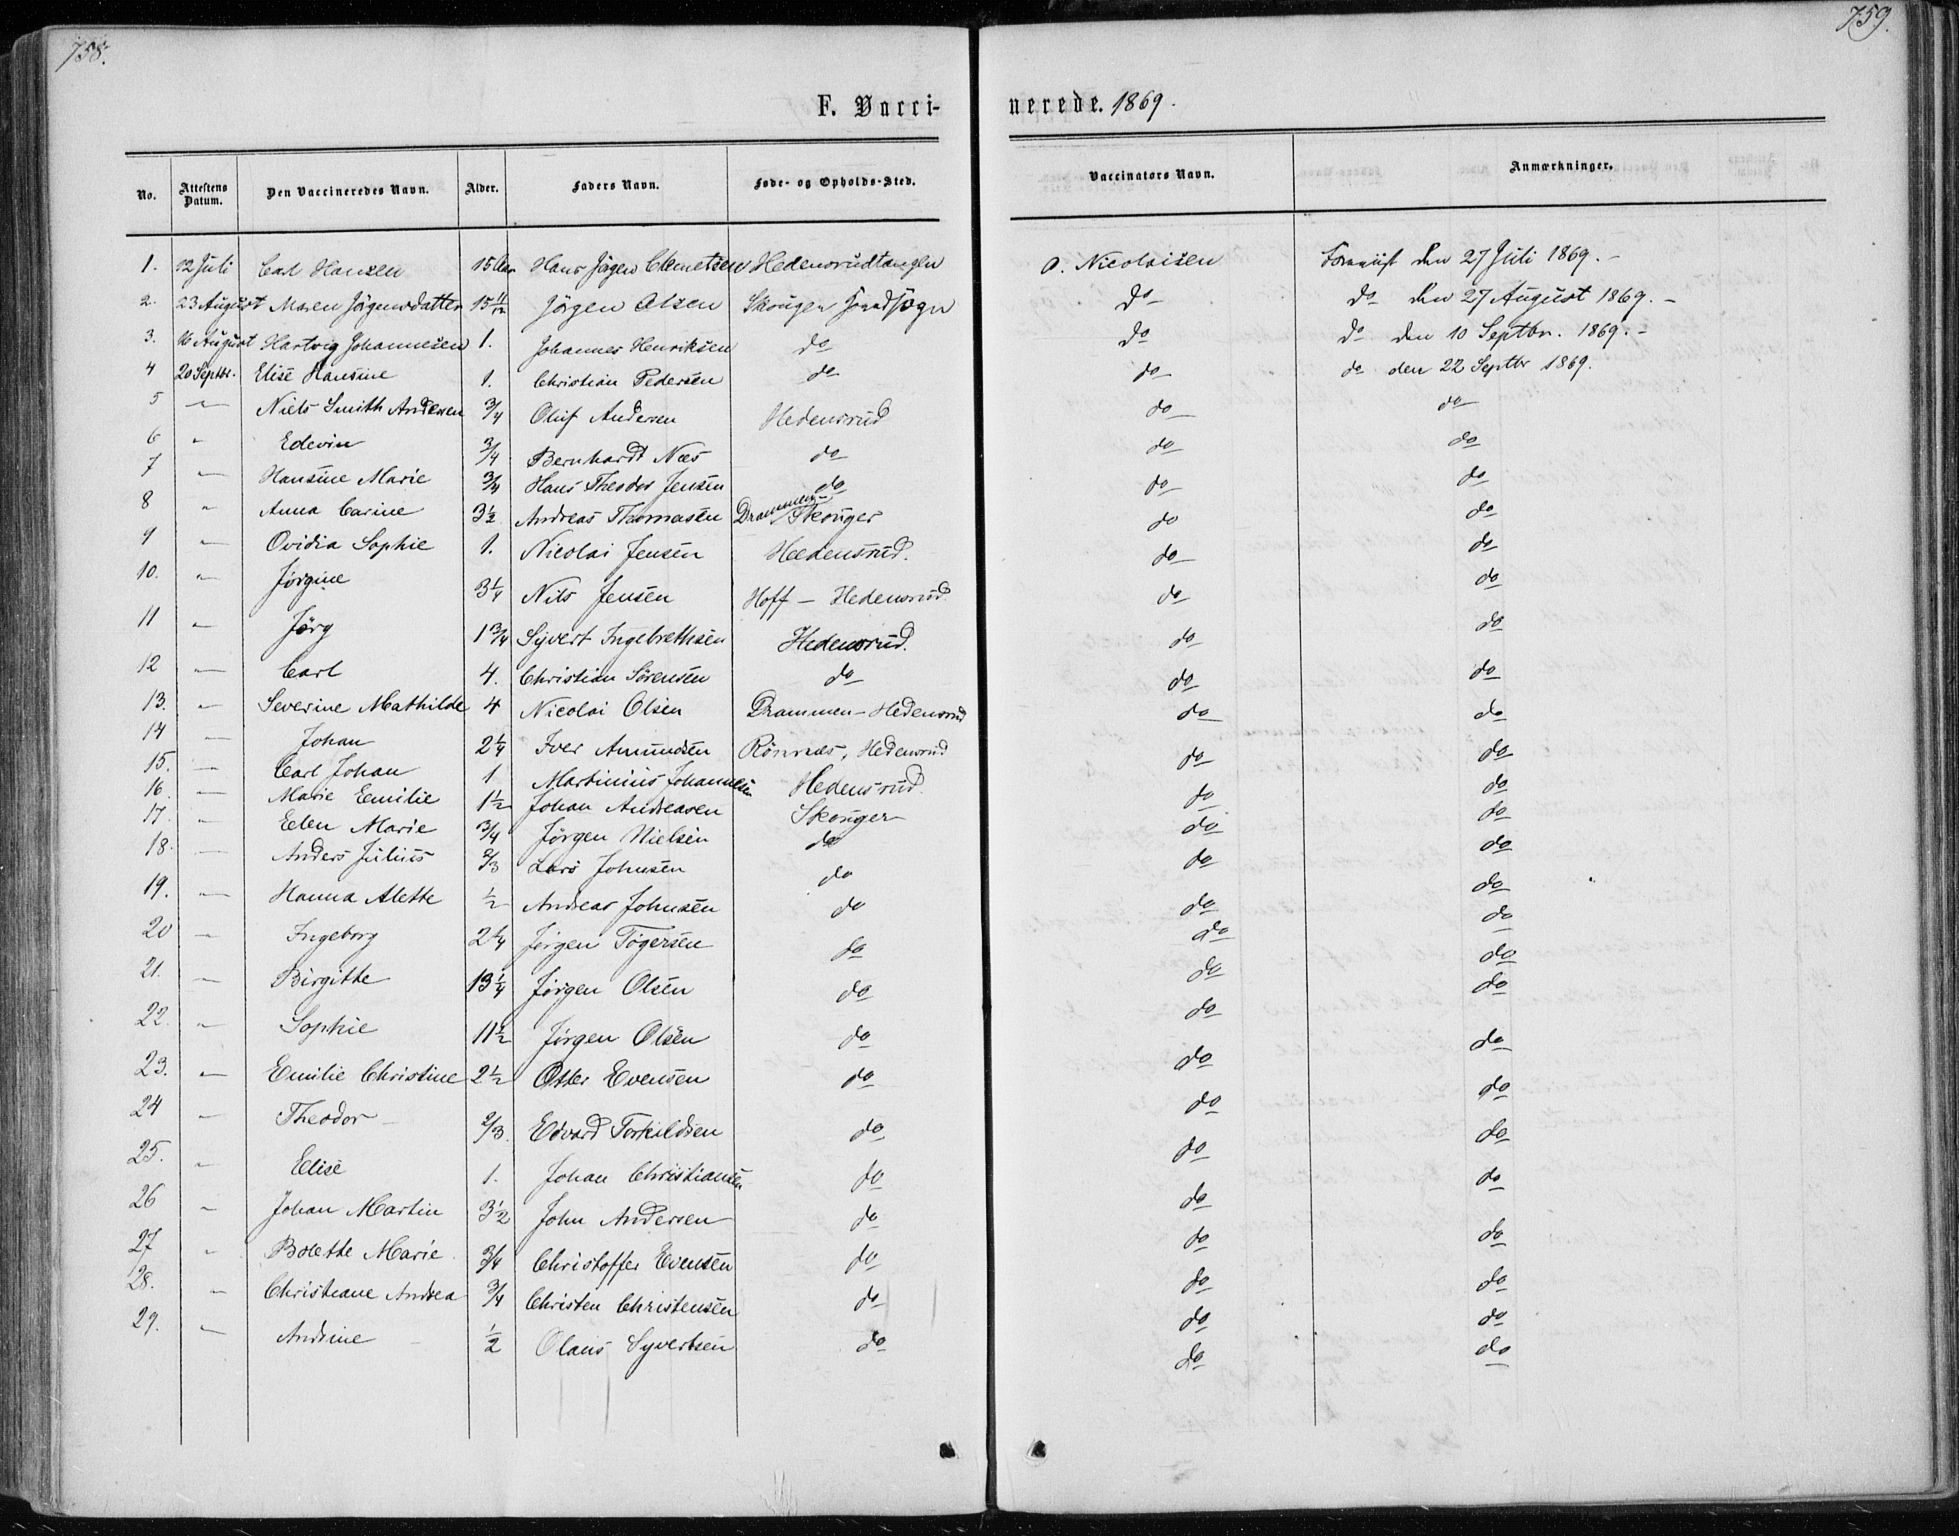 758.
759.
F. Vacci- nerede. 1869.
No. Attestens Datum. Den Vaccineredes Navn. Alder. Faders Navn. Føde- og Opholds-Sted. Vaccinators Navn. Anmærkninger.
1. 12 Juli Carl Hansen 15 Aar Hans Jögen Clemetsen Hedensrudtangen O. Nicolaisen den 27 Juli 1869. -
2. 23 August Maren Jörgensdatter 15 11/12 Jörgen Olsen Skouger Hovedsogn do do den 27 August 1869. -
3. 16 August Hartvig Johannesen 1. Johannes Henriksen do do do den 10 Septbr. 1869. -
4 20 Septbr. Elise Hansine 1. Christian Pedersen do do do den 22 Septbr 1869.
5 " Niels Smith Andersen 3/4 Oluf Andersen Hedensrud do do
6 " Edevin 3/4 Bernhardt Næs do do do
7 " Hansine Marie 3/4 Hans Theodor Jensen do do do
8 " Anna Carine 3 1/2 Andreas Thomasen Drammen - Skouger do do
9 " Ovidia Sophie 1. Nicolai Jensen Hedensrud. do do
10. " Jørgine 3 1/4 Nils Jensen Hoff - Hedensrud do do
11 " Jørg 1 3/4 Syvert Ingebrethsen Hedensrud. do do
12 " Carl 4. Christian Sörensen do do do
13. " Severine Mathilde 4 Nicolai Olsen Drammen - Hedensrud do do
14 " Johan 2 1/4 Iver Amundsen Rönnæs, Hedensrud do do
15. " Carl Johan 1 Martinius Johannesen Hedensrud. do do
16. " Marie Emilie 1 1/2 Johan Andreasen Skouger do do
17. " Ellen Marie 3/4 Jørgen Nielsen do do do
18. " Anders Julius 2/3 Lars Johnsen do do do
19. " Hanna Alette 1/2 Andreas Johnsen do do do
20 " Ingeborg 2 1/4 Jørgen Togersen do do do
21. " Birgitte 13 1/4 Jørgen Olsen do do do
22. " Sophie 11 1/2 Jørgen Olsen do do do
23. " Emilie Christine 2 1/2 Otter Evensen do do do
24 " Theodor - 2/3. Edvard Torkildsen do do do
25. " Elise 1. Johan Christiansen do do do
26 " Johan Martin 3 1/2 John Andersen do do do
27 " Bolette Marie 3/4 Christoffer Evensen do do do
28. " Christiane Andrea 3/4 Christen Christensen do do do
29. " Andrine 1/2 Olaus Syvertsen do do do